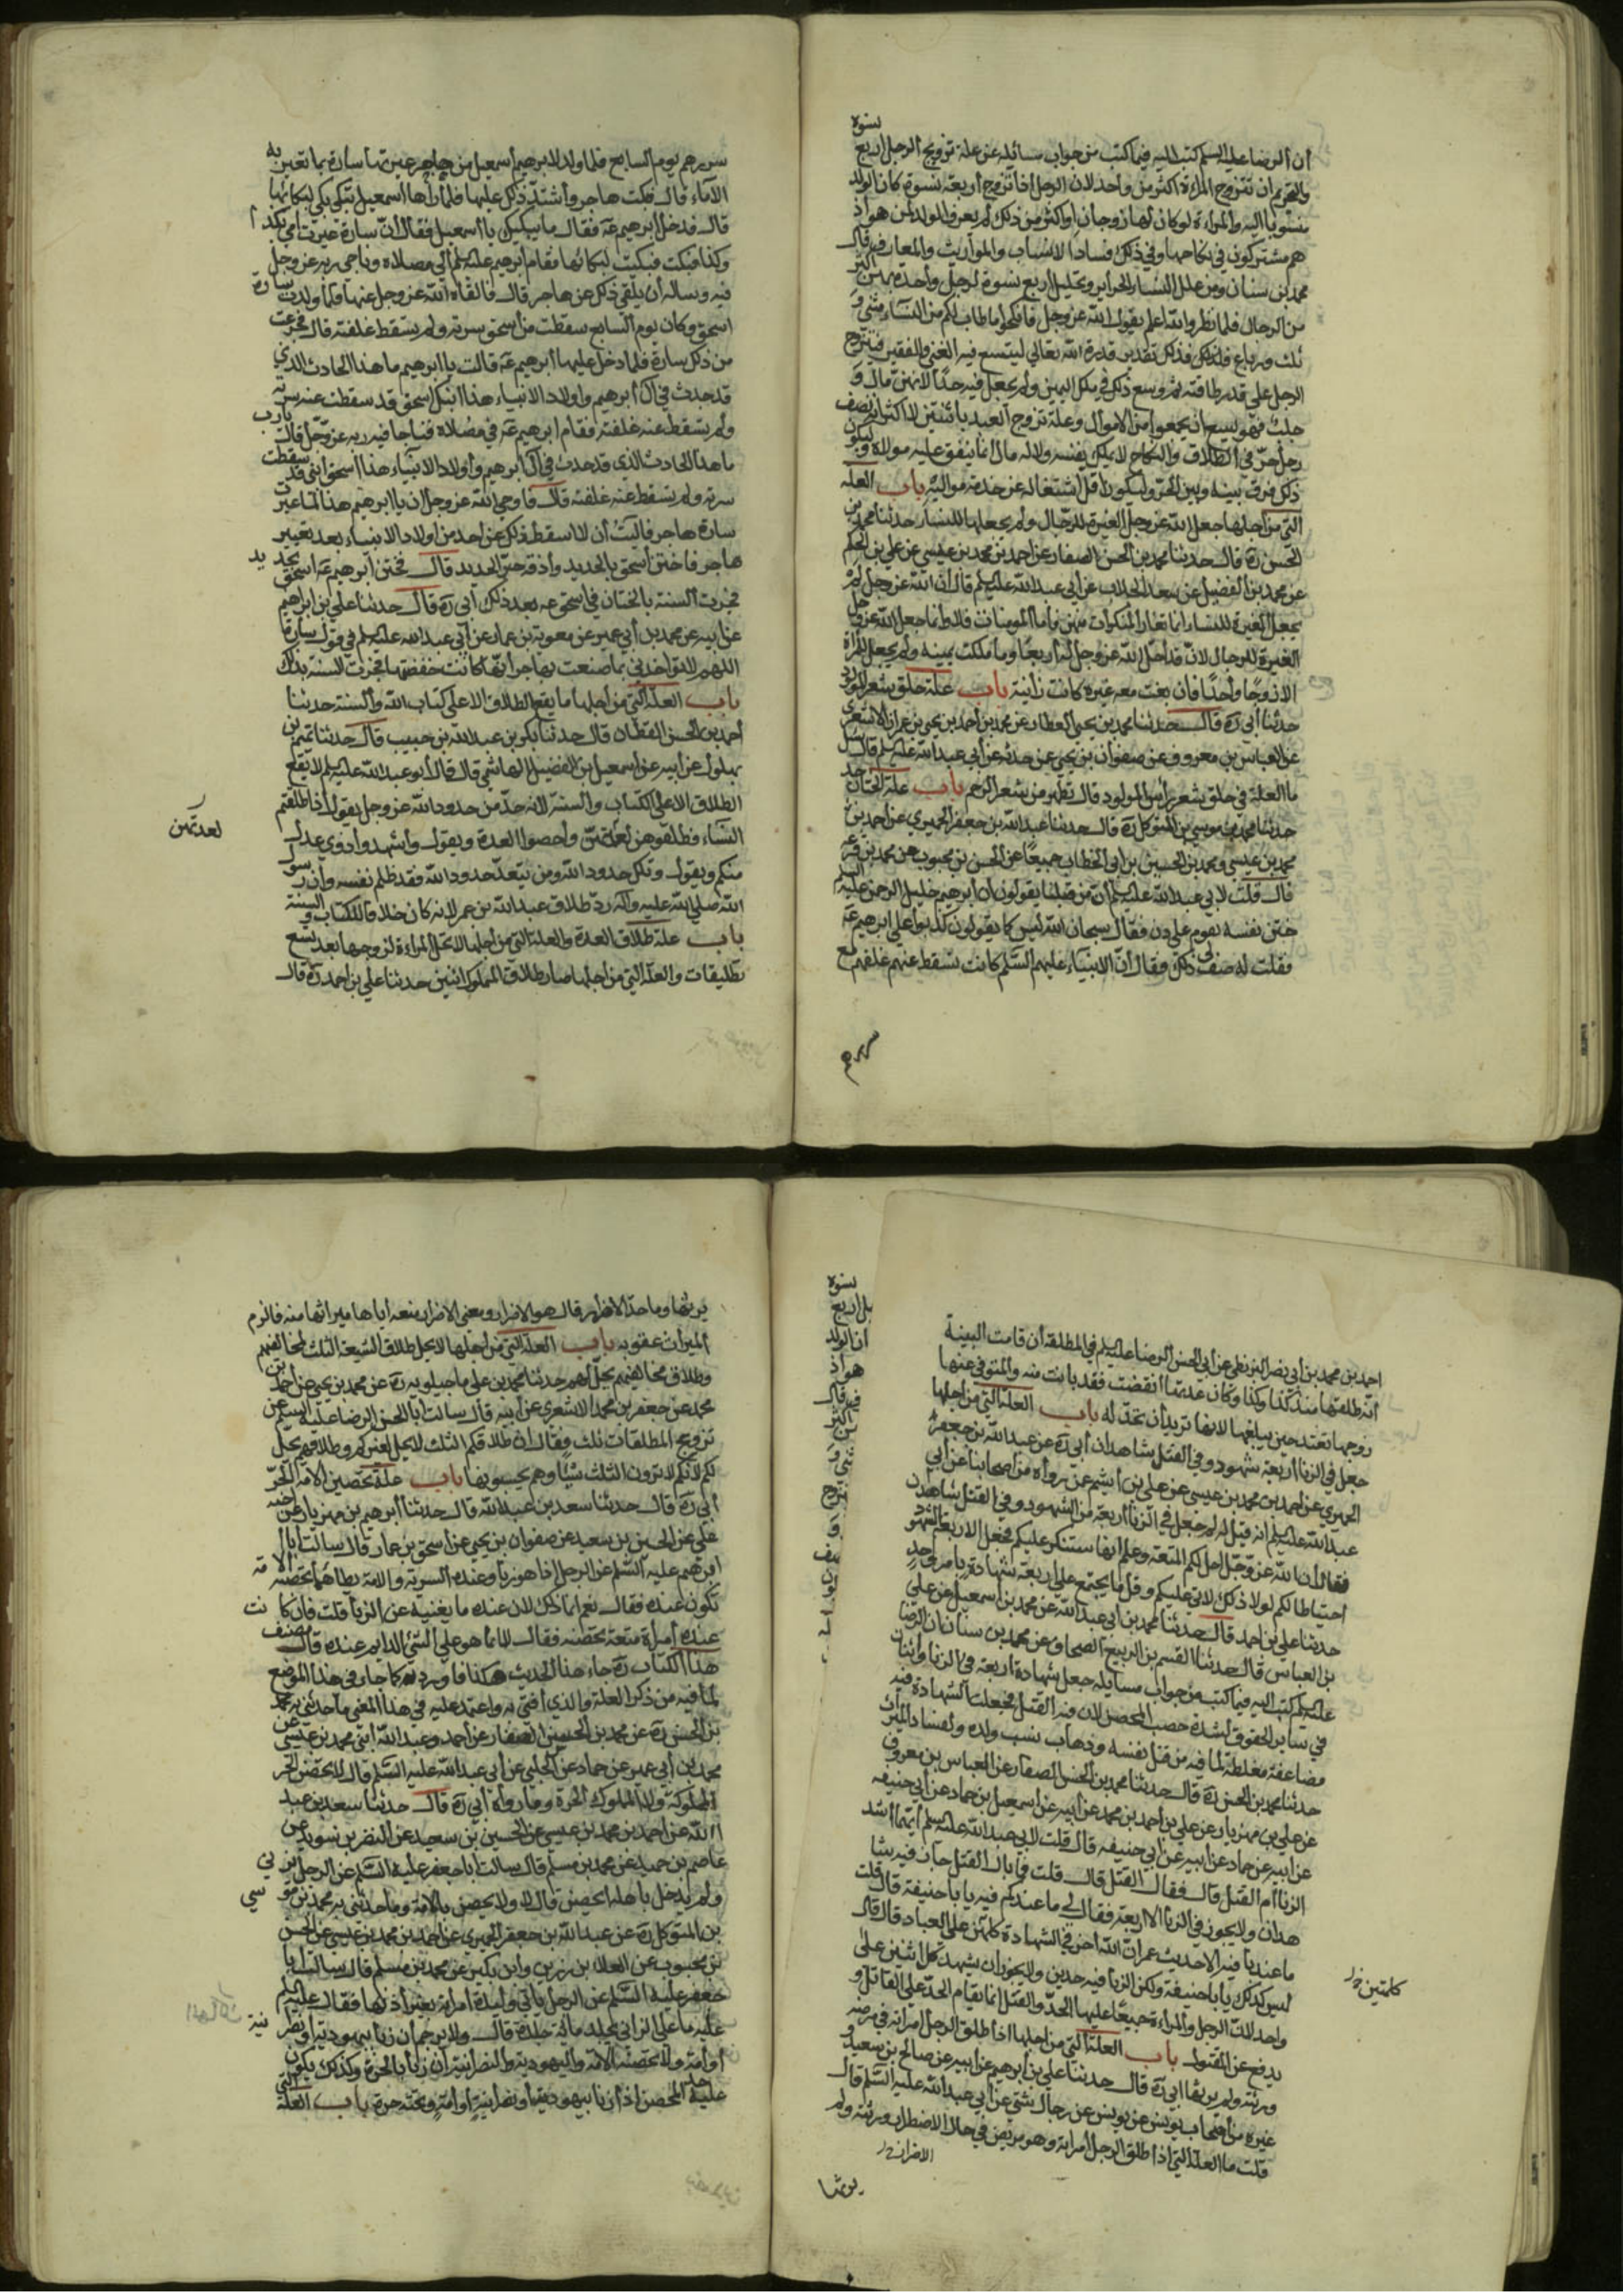 نسوة
أن الرضا عليه السلم كتب اليه فيما كتب من جواب مسائله عن علة تزويج الرجل اربع
والتحريم ان تتزوج المراءة اكثر من واحد لان الرجل اذا تزوج أربعة نسوة كان الولد
منسوبا اليه والمراءة لو كان لها زوجان او اكثر من ذلك لم يعرف الولد لمن هو اذ
هم مشتركون في نكاحها وفي ذلك فساد الانساب والمواريث والمعارف قال
محمد بن سنان ومن علل النساء الحراير وتحليل اربع نسوة لرجل واحد انهن اكثر
من الرجال فلما نظر والله اعلم يقول الله عز وجل فانكحوا ما طاب لكم من النساء مثنى و
ثلث ورباع فلذلك فذلك تقدير قدره الله تعالى ليتسع فيه الغني والفقير فيتزوج
الرجل على قدر طاقته ثم وسع ذلك في ملك اليمين ولم يجعل فيه حدا لانهن مال و
جلب فهو يسع ان يجمعوا من الاموال وعلة تزوج العبد باثنتين لا اكثر انه نصف
رجل حر في الطلاق والنكاح لا يملك نفسه ولا له مال انما ينفق عليه مولاه وليكون
ذلك فرق بينه وبين الحر وليكون اقل اشتغاله عن خدمة مواليه باب العلة
التي من اجلها جعل الله عز وجل الغيرة للرجال ولم يجعلها للنساء حدثنا محمد بن
الحسن ره قال حدثنا محمد بن الحسن الصفار عن احمد بن محمد بن عيسى عن علي بن الحكم
عن محمد بن الفضيل عن سعد الجلاب عن أبي عبد الله عليه السلم قال ان الله عز وجل لم
يجعل الغيرة للنساء انما تغار المنكرات منهن فاما المومنات فلا وانما جعل الله عز وجل
الغيرة للرجال لان قد احل الله عز وجل له أربعا وما ملكت يمينه ولم يجعل للمراة
الا زوجا واحدا فان بغت معه غيره كانت زانية باب علة حلق شعر المولود
حدثنا أبي ره قال حدثنا محمد بن يحيى العطار عن محمد بن احمد بن يحيى بن عمران الاشعري
عن العباس بن معروف عن صفوان بن يحيى عن حدثه عن أبي عبد الله عليه السلم قال سئل
ما العلة في حلق شعر رأس المولود قال تطهره من شعر الرحم باب علة الختان
حدثنا محمد بن موسى بن المتوكل ره قال حدثنا عبد الله بن جعفر الحميري عن احمد بن
محمد بن عيسى ومحمد بن الحسين بن ابي الخطاب جميعا عن الحسن بن محبوب عن محمد بن قزعة
قال قلت لابي عبد الله عليه السلم ان من قبلنا يقولون ان ابرهيم خليل الرحمن عليه السلم
ختن نفسه بقدوم على دن فقال سبحان الله ليس كما يقولون كذبوا على ابرهيم عه
فقلت له صف لي ذلك فقال ان الانبياء عليهم السلم كانت تسقط عنهم غلفهم مع
سررهم
سررهم يوم السابع فلما ولد لابرهيم اسمعيل من هاجر عيرتها سارة بما تعير به
الاماء قال فبكت هاجر وأشتد ذلك عليها فلما رأها اسمعيل تبكي بكى لبكائها
قال فدخل ابرهيم عه فقال ما يبكيك يا أسمعيل فقال ان سارة عيرت أمي بكذا
وكذا فبكت فبكيت لبكائها فقام ابرهيم عليه السلم الى مصلاه وناجى ربه عز وجل
فيه وساله أن يلقي ذلك عن هاجر قال فالقاه الله عز وجل عنها فلما ولدت سارة
اسحق وكان يوم السابع سقطت من اسحق سرته ولم تسقط غلفته قال فجزعت
من ذلك سارة فلما دخل عليها ابرهيم عه قالت يا ابرهيم ما هذا الحادث الذي
قد حدث في آل ابرهيم واولاد الانبياء هذا ابنك اسحق قد سقطت عنه سرته
ولم تسقط عنه غلفته فقام ابرهيم عه في مصلاه فناجا فيه ربه عز وجل قال يا رب
ما هذا الحادث الذي قد حدث في آل ابرهيم وأولاد الانبياء هذا اسحق ابني قد سقطت
سرته ولم تسقط عنه غلفته قال فاوحى الله عز وجل ان يا ابرهيم هذا لما عيرت
سارة هاجر فاليت أن لا اسقط ذلك عن احد من اولاد الانبياء بعد تعيير
هاجر فاختن اسحق بالحديد وأذقه حر الحديد قال فختن ابرهيم عه اسحق بحديد
فجرت السنة بالختان في اسحق عه بعد ذلك أبي ره قال حدثنا علي بن ابراهيم
عن ابيه عن محمد بن أبي عمير عن معوية بن عمار عن أبي عبد الله عليه السلم في قول سارة
اللهم لا تواخذني بما صنعت بهاجر انها كانت خفضتها فجرت السنة بذلك
باب العلة التي من اجلها ما يقع الطلاق الا على كتاب الله والسنة حدثنا
أحمد بن الحسن القطان قال حدثنا بكر بن عبد الله بن حبيب قال حدثنا تميم بن
بهلول عن ابيه عن اسمعيل بن الفضيل الهاشمي قال قال أبو عبد الله عليه السلم لا يقع
الطلاق الا على الكتاب والسنة لانه حد من حدود الله عز وجل يقول اذا طلقتم
لعدتهن
النساء فطلقوهن لعدتهن وأحصوا العدة ويقول وأشهدوا ذوي عدل
منكم ويقول وتلك حدود الله ومن يتعد حدود الله فقد ظلم نفسه وأن رسول
الله صلى الله عليه وآله رد طلاق عبد الله بن عمر لانه كان خلافا للكتاب والسنة
باب علة طلاق العدة والعلة التي من اجلها لا تحل المراءة لزوجها بعد تسع
تطليقات والعلة التي من اجلها صار طلاق المملوك اثنين حدثنا علي بن احمد ره قال
احمد بن محمد بن أبي نصر البزنطي عن ابي الحسن الرضا عليه السلم في المطلقة أن قامت البينة
أنه طلقها منذ كذا وكذا وكان عدتها انقضت فقد بانت منه والمتوفي عنها
زوجها تعتد حين يبلغها لانها تريد أن تحد له باب العلة التي من اجلها
جعل في الزنا أربعة شهود وفي القتل شاهدان أبي ره عن عبد الله بن جعفر
الحميري عن احمد بن محمد بن عيسى عن علي بن أشيم عمن رواه من اصحابنا عن أبي
عبد الله عليه السلم انه قيل له لم جعل في الزنا أربعة من الشهود وفي القتل شاهدان
فقال ان الله عز وجل احل لكم المتعة وعلم انها ستنكر عليكم فجعل الاربعة الشهود
احتياطا لكم لولا ذلك لاتي عليكم وقل ما يجتمع على اربعة شهادة بامر واحد
حدثنا علي بن احمد قال حدثنا محمد بن ابي عبد الله عن محمد بن اسمعيل عن علي
بن العباس قال حدثنا القسم بن الربيع الصحاف عن محمد بن سنان ان الرضا
عليه السلم كتب اليه فيما كتب من جواب مسايله جعل شهادة اربعة في الزنا واثنان
في ساير الحقوق لشدة حصب المحصن لان فيه القتل فجعلت الشهادة فيه
مضاعفة مغلظة لما فيه من قتل نفسه وذهاب نسب ولده ولفساد الميراث
حدثنا محمد بن الحسن ره قال حدثنا محمد بن الحسن الصفار عن العباس بن معروف
عن علي بن مهزيار عن علي بن احمد بن محمد عن أبيه عن اسمعيل بن حماد عن ابي حنيفه
عن ابيه عن حماد عن ابيه عن أبي حنيفه قال قلت لابي عبد الله عليه السلم أيهما اشد
الزنا أم القتل قال فقال القتل قال قلت فما بال القتل جاز فيه شا
هدان ولا يجوز في الزنا الا اربعة فقال لي ما عندكم فيه يا با حنيفة قال قلت
ما عندنا فيه الا حديث عمر ان الله اخرج في الشهادة كلمتين على العباد قال قال
كلمتين خ ل
ليس كذلك يا با حنيفة ولكن الزنا فيه حدين ولا يجوز أن يشهد كل اثنين على
واحد لان الرجل والمراءة جميعا عليهما الحد والقتل انما يقام الحد على القاتل و
يدفع عن المقتول باب العلة التي من اجلها اذا طلق الرجل امراته في مرضه
ورثته ولم يرثها ابي ره قال حدثنا علي بن ابرهيم عن ابيه عن صالح بن سعيد و
غيره من أصحاب يونس عن يونس عن رجال شتى عن ابي عبد الله عليه السلم قال
قلت ما العلة التي اذا طلق الرجل امراته وهو مريض في حال الاضطرار ورثته ولم
الاضرار خ ل
يرثها
يرثها وما حد الاضرار قال هو الاضرار ومعنى الاضرار منعه اياها ميراثها منه فالزم
الميراث عقوبة باب العلة التي من اجلها لا يحل طلاق الشيعة الثلث لمخالفيهم
وطلاق مخالفيهم يحل لهم حدثنا محمد بن علي ماجيلويه ره عن محمد بن يحيى عن احمد بن
محمد عن جعفر بن محمد الاشعري عن أبيه قال سالت ابا الحسن الرضا عليه السلم عن
تزويج المطلقات ثلث فقال ان طلاقكم الثلث لا يحل لغيركم وطلاقهم يحل
لكم لانكم لا ترون الثلث شيئا وهم يحبسونها باب علة تحصين الامة الحر
أبي ره قال حدثنا سعد بن عبد الله قال حدثنا ابرهيم بن مهزيار عن اخيه
علي عن الحسين بن سعيد عن صفوان بن يحيى عن اسحق بن عمار قال سالت ابا
ابرهيم عليه السلم عن الرجل اذا هو زنا وعنده السرية والامة يطاهما تحصنه الامة
تكون عنده فقال نعم انما ذلك لان عنده ما يغنيه عن الزنا قلت فان كانت
عنده أمرأة متعة تحصنه فقال لا انما هو على الشيء الدايم عنده قال مصنف
هذا الكتاب ره جاء هذا الحديث هكذا فاوردته كما جاء في هذا الموضع
لما فيه من ذكر العلة والذي أفتي به واعتمد عليه في هذا المعنى ما حدثني به محمد
بن الحسن ره عن محمد بن الحسين الصفار عن أحمد وعبد الله ابني محمد بن عيسى عن
محمد بن أبي عمير عن حماد عن الحلبي عن أبي عبد الله عليه السلم قال لا يحصن الحر
المملوكة ولا المملوك الحرة وما رواه أبي ره قال حدثنا سعد بن عبد
الله عن احمد بن محمد بن عيسى عن الحسين بن سعيد عن النضر بن سويد عن
عاصم بن حميد عن محمد بن مسلم قال سالت ابا جعفر عليه السلم عن الرجل يزني
ولم يدخل باهله ايحصن قال لا ولا يحصن بالامة وما حدثني به محمد بن موسى
بن المتوكل ره عن عبد الله بن جعفر الحميري عن احمد بن محمد بن عيسى عن الحسن
بن محبوب عن العلاء بن رزين وابن بكير عن محمد بن مسلم قال سالت ابا
جعفر عليه السلم عن الرجل يأتي وليدة امرأته بغير أذنها فقال عليه السلم
عليه ما على الزاني يجلد مائة جلدة قال ولا يرجم ان زنا بيهودية او نصرانية
أو أمة ولا تحصنه الامة واليهودية والنصرانية ان زنا بالحرة وكذلك يكون
عليه حد المحصن اذ زنا بيهودية أو نصرانية أو أمة وتحته حرة باب العلة التي